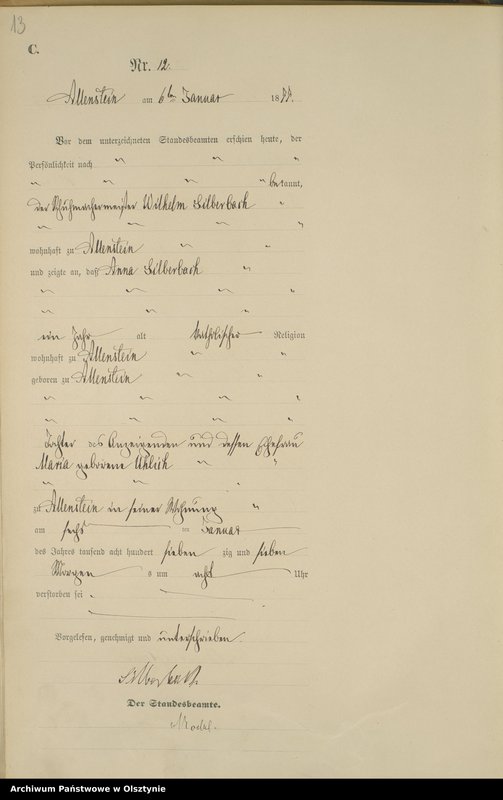 13
C.
Nr. 12.
Allenstein am 6ten Januar 1877.
Vor dem unterzeichneten Standesbeamten erschien heute, der
Persönlichkeit nach
bekannt,
der Schuhmachermeister Wilhelm Silberbach
wohnhaft zu Allenstein
und zeigte an, daß Anna Silberbach
ein Jahr alt katholischer Religion
wohnhaft zu Allenstein
geboren zu Allenstein
Tochter des Anzeigenden und dessen Ehefrau
Maria geborene Uhlich
zu Allenstein in seiner Wohnung
am sechs ten Januar
des Jahres tausend acht hundert sieben zig und sieben
Morgen s um acht Uhr
verstorben sei.
Vorgelesen, genehmigt und unterschrieben.
Silberbach.
Der Standesbeamte.
Archiwum Państwowe w Olsztynie